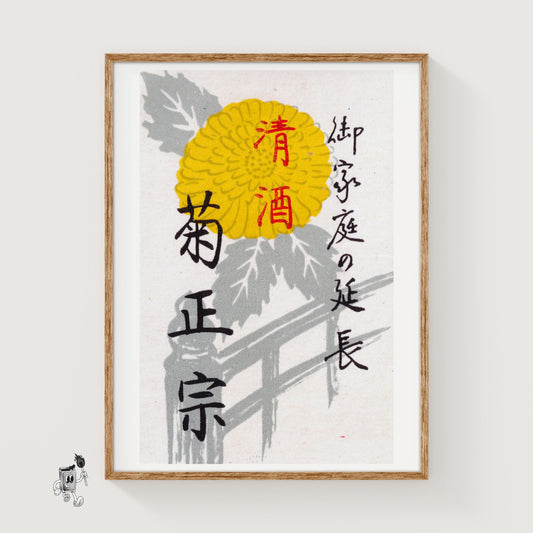 御家庭の延長
清酒
菊正宗